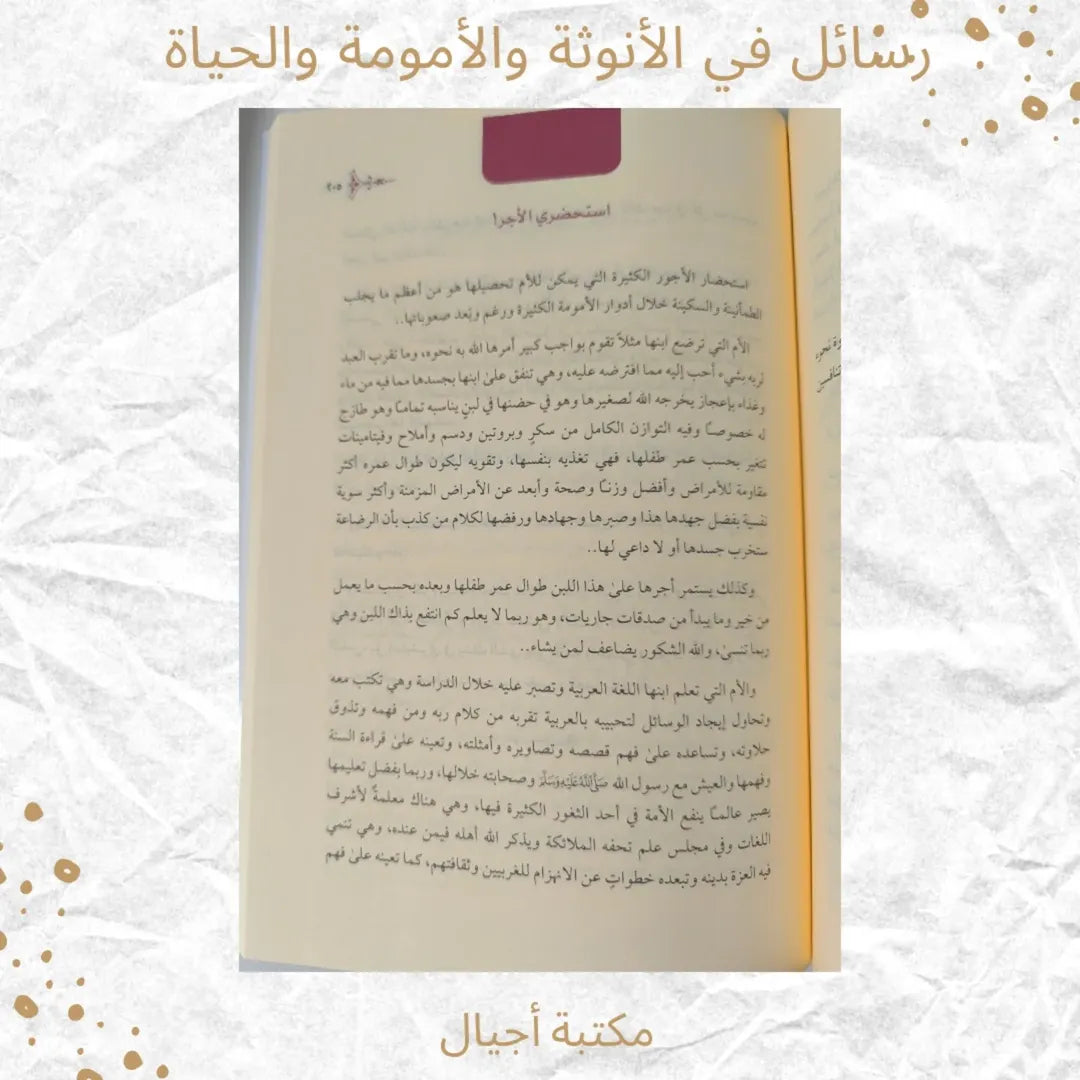 رسائل في الأنوثة والأمومة والحياة
٢٠٥
استحضري الأجر!
استحضار الأجور الكثيرة التي يمكن للأم تحصيلها هو من أعظم ما يجلب
الطمأنينة والسكينة خلال أدوار الأمومة الكثيرة ورغم وبُعد صعوباتها..
الأم التي ترضع ابنها مثلاً تقوم بواجب كبير أمرها الله به نحوه، وما تقرب العبد
لربه بشيء أحب إليه مما افترضه عليه، وهي تنفق علىٰ ابنها بجسدها مما فيه من ماء
وغذاء بإعجاز يخرجه الله لصغيرها وهو في حضنها في لبنٍ يناسبه تمامًا وهو طازج
له خصوصًا وفيه التوازن الكامل من سكرٍ وبروتين ودسم وأملاح وفيتامينات
تتغير بحسب عمر طفلها، فهي تغذيه بنفسها، وتقويه ليكون طوال عمره أكثر
مقاومة للأمراض وأفضل وزنًا وصحة وأبعد عن الأمراض المزمنة وأكثر سوية
نفسية بفضل جهدها هذا وصبرها وجهادها ورفضها لكلام من كذب بأن الرضاعة
ستخرب جسدها أو لا داعي لها..
وكذلك يستمر أجرها علىٰ هذا اللبن طوال عمر طفلها وبعده بحسب ما يعمل
من خير وما يبدأ من صدقات جاريات، وهو ربما لا يعلم كم انتفع بذاك اللبن وهي
ربما تنسىٰ، والله الشكور يضاعف لمن يشاء..
والأم التي تعلم ابنها اللغة العربية وتصبر عليه خلال الدراسة وهي تكتب معه
وتحاول إيجاد الوسائل لتحبيبه بالعربية تقربه من كلام ربه ومن فهمه وتذوق
حلاوته، وتساعده علىٰ فهم قصصه وتصاويره وأمثلته، وتعينه علىٰ قراءة السنة
وفهمها والعيش مع رسول الله ﷺ وصحابته خلالها، وربما بفضل تعليمها
يصير عالمًا ينفع الأمة في أحد الثغور الكثيرة فيها، وهي هناك معلمةٌ لأشرف
اللغات وفي مجلس علم تحفه الملائكة ويذكر الله أهله فيمن عنده، وهي تنمي
فيه العزة بدينه وتبعده خطواتٍ عن الانهزام للغربيين وثقافتهم، كما تعينه علىٰ فهم
مكتبة أجيال